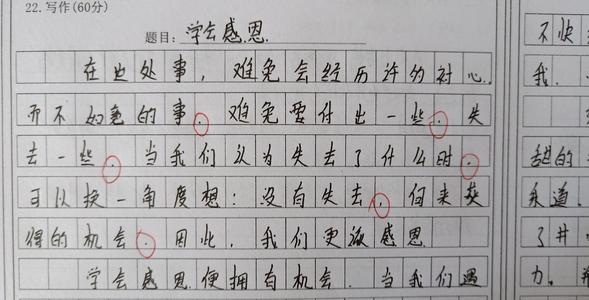 22. 写作(60分)
题目: 学会感恩.
在世处事, 难免会经历许多衬心
而不如意的事. 难免要付出一些. 失
去一些. 当我们认为失去了什么时.
可以换一角度想: 没有失去, 何来获
得的机会. 因此, 我们更该感恩
学会感恩.便拥有机会. 当我们遇
不快
我.
甜的
永道.
了井
力.